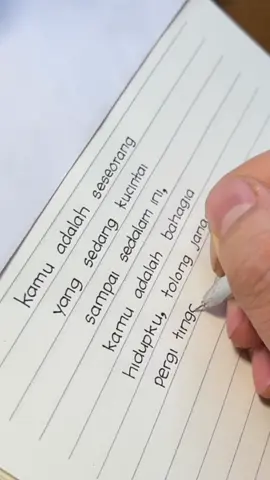 kamu adalah seseorang
yang sedang kucintai
sampai sedalam ini,
kamu adalah bahagia
hidupku, tolong jang
pergi ting